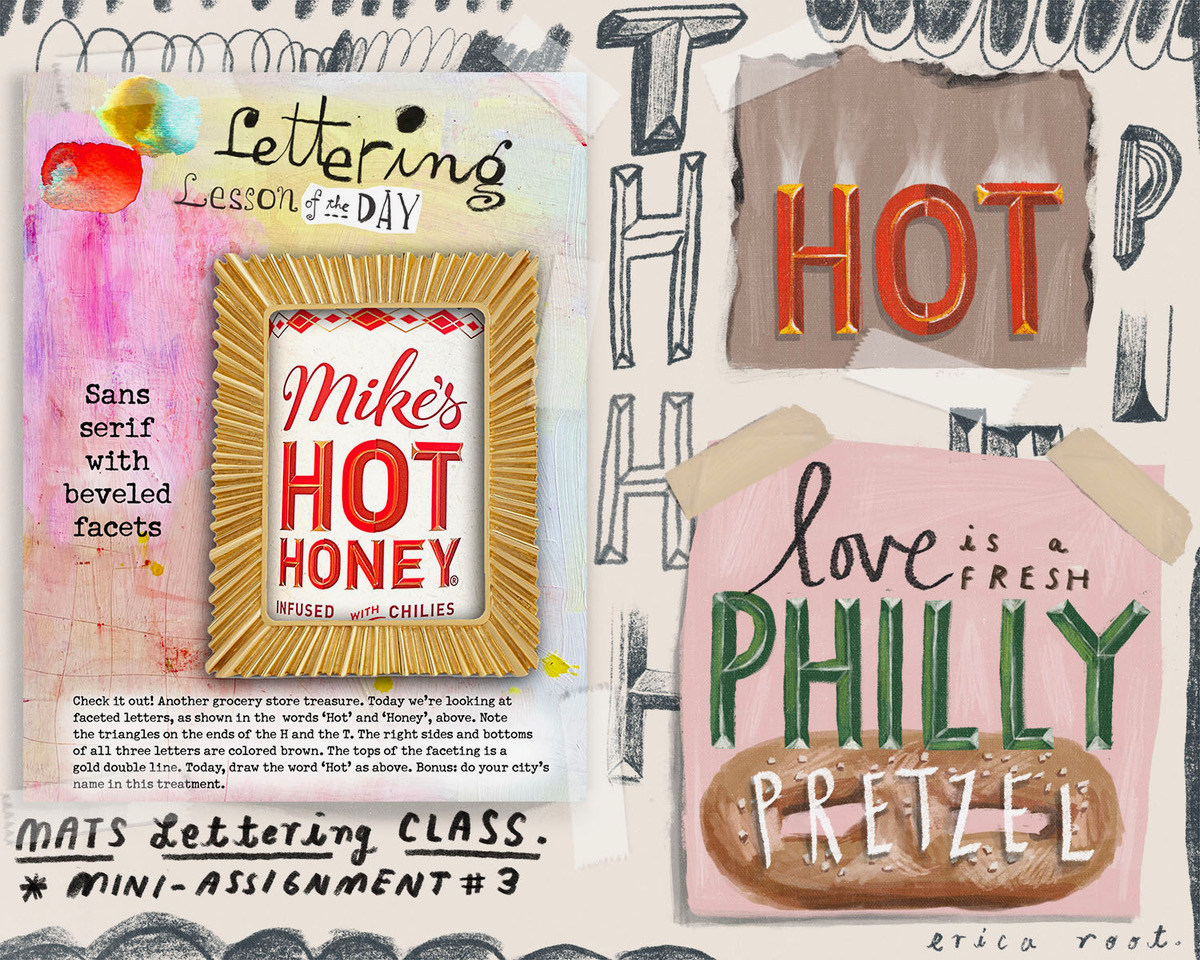 Lettering
Lesson of the DAY
Sans
serif
with
beveled
facets
Mike's
HOT
HONEY®
INFUSED WITH CHILIES
Check it out! Another grocery store treasure. Today we're looking at
faceted letters, as shown in the words 'Hot' and 'Honey', above. Note
the triangles on the ends of the H and the T. The right sides and bottoms
of all three letters are colored brown. The tops of the faceting is a
gold double line. Today, draw the word 'Hot' as above. Bonus: do your city's
name in this treatment.
MATS Lettering CLASS.
* MINI-ASSIGNMENT #3
T
H
H
H
HOT
P
I
love is a
FRESH
PHILLY
PRETZEL
erica root.